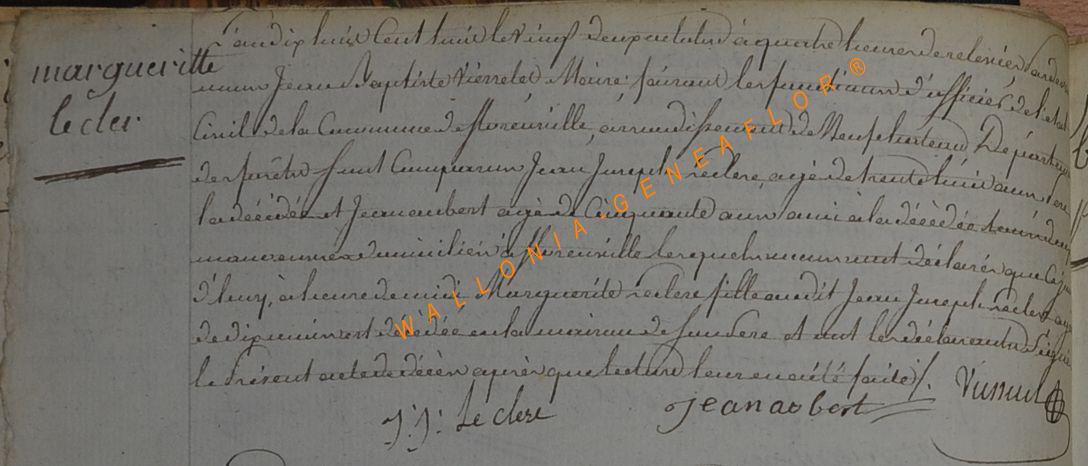 margueritte
lecler.
L'an dix huit Cent huit le vingt deux octobre à quatre heures de relevée, par devant
nous Jean Baptiste Vierrelet Maire faisant les fonctions d'officier de l'etat
Civil de la Commune de florenville, arrondissement de Neufchateau Département
des forêts sont Comparus Jean Joseph Leclere, agé de trente huit ans pere
la décédée et Jean aubert agé de Cinquante ans ami à la décédée tous deux
domiciliés à florenville lesquels nous ont déclarés que Cejour
d'huy, à heure de midi Marguerite Leclere fille audit Jean Joseph Leclere agée
de dix mois est décédée en la maison de son pere et ont les déclarants Signé
le Présent acte de décès après que lecture leur en a été faite /.
J: J: Leclere
jean aobert
WALLONIA GENEAFLOR ®